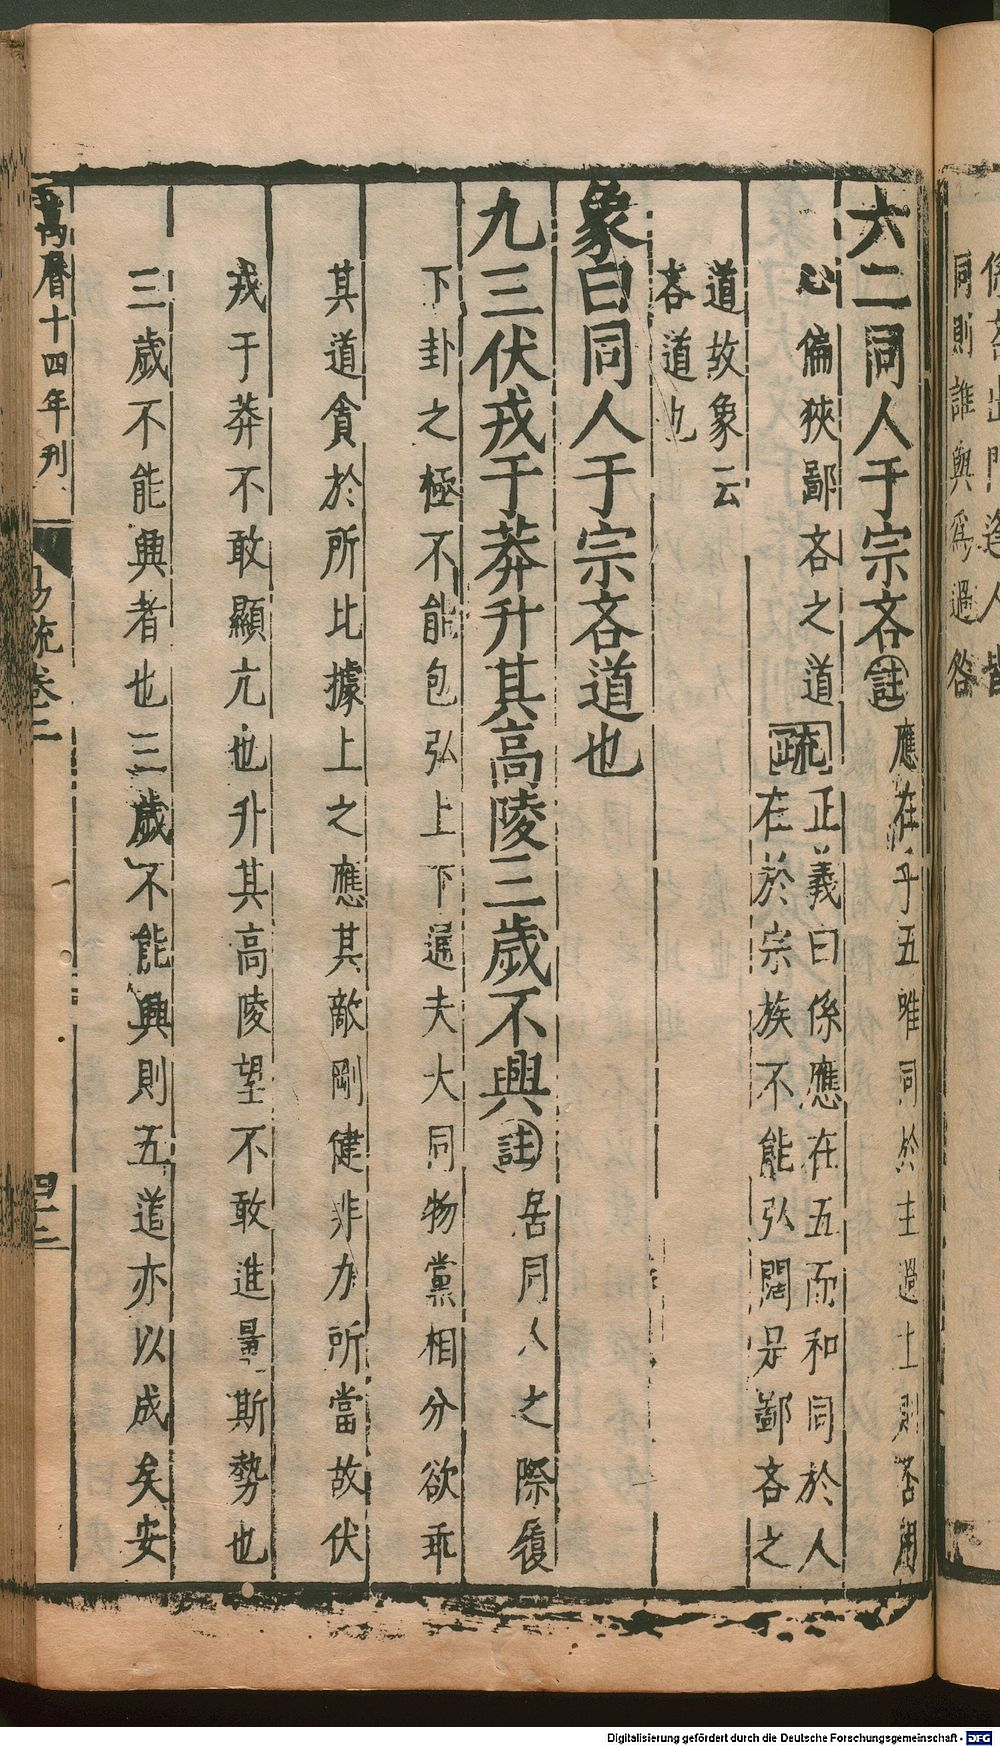 六二同人于宗吝註應在乎五唯同於主過主則否用
心偏狹鄙吝之道疏正義曰係應在五而和同於人
在於宗族不能弘闊是鄙吝之
道故象云
吝道也
象曰同人于宗吝道也
九三伏戎于莽升其高陵三歲不興註居同人之際履
下卦之極不能包弘上下通夫大同物黨相分欲乖
其道貪於所比據上之應其敵剛健非力所當故伏
戎于莽不敢顯亢也升其高陵望不敢進量斯勢也
三歲不能興者也三歲不能興則五道亦以成矣安
萬曆十四年刊
易疏卷二
四十三
同則誰與爲過咎
Digitalisierung gefördert durch die Deutsche Forschungsgemeinschaft - DFG